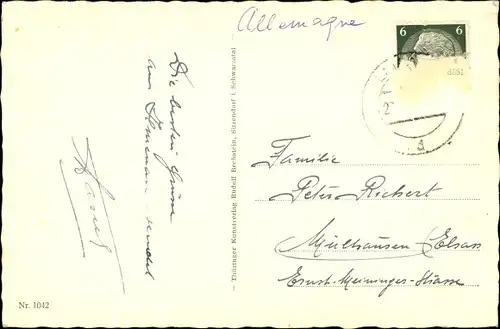 Allemagne
6 6
Die besten Grüsse
aus Ilmenau sendet
Thüringer Kunstverlag Rudolf Bechstein, Sitzendorf i. Schwarzatal
Familie
Peter Richert
Mülhausen (Elsass
Ernst-Meininger-Strasse
a
Nr. 1042